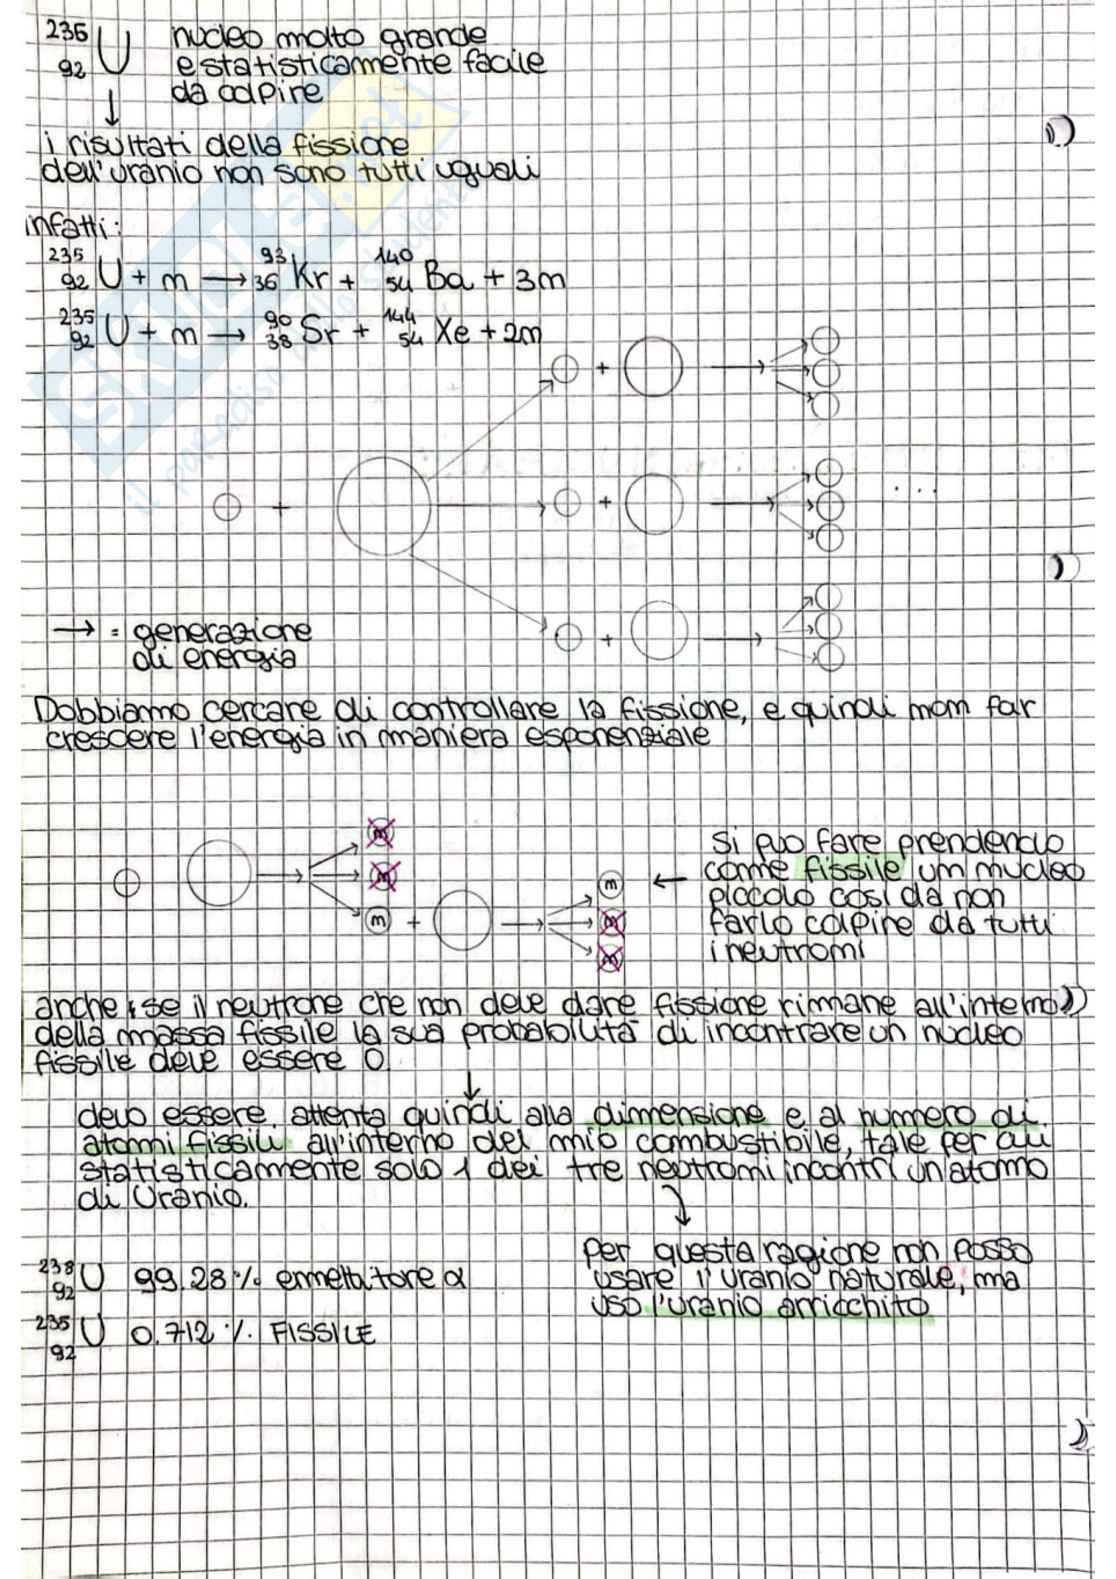 235
92 U nucleo molto grande
e statisticamente facile
da colpire
↓
i risultati della fissione
dell'uranio non sono tutti uguali
infatti:
235/92 U + n → 93/36 Kr + 140/54 Ba + 3n
235/92 U + n → 90/38 Sr + 144/54 Xe + 2n
+ + →
+ + → ...
→ = generazione + →
di energia
Dobbiamo cercare di controllare la fissione, e quindi non far
crescere l'energia in maniera esponenziale
n
n
n + → n
n
n
← Si può fare prendendo
come fissile un nucleo
piccolo così da non
farlo colpire da tutti
i neutroni
anche se il neutrone che non deve dare fissione rimane all'interno
della massa fissile la sua probabilità di incontrare un nucleo
fissile deve essere 0
↓
devo essere attenta quindi alla dimensione e al numero di
atomi fissili all'interno del mio combustibile, tale per cui
statisticamente solo 1 dei tre neutroni incontri un atomo
di Uranio.
per questa ragione non posso
usare l'uranio naturale, ma
uso l'uranio arricchito
238/92 U 99.28 % emettitore α
235/92 U 0.712 % FISSILE
SKUOLA.net
il paradiso dello studente